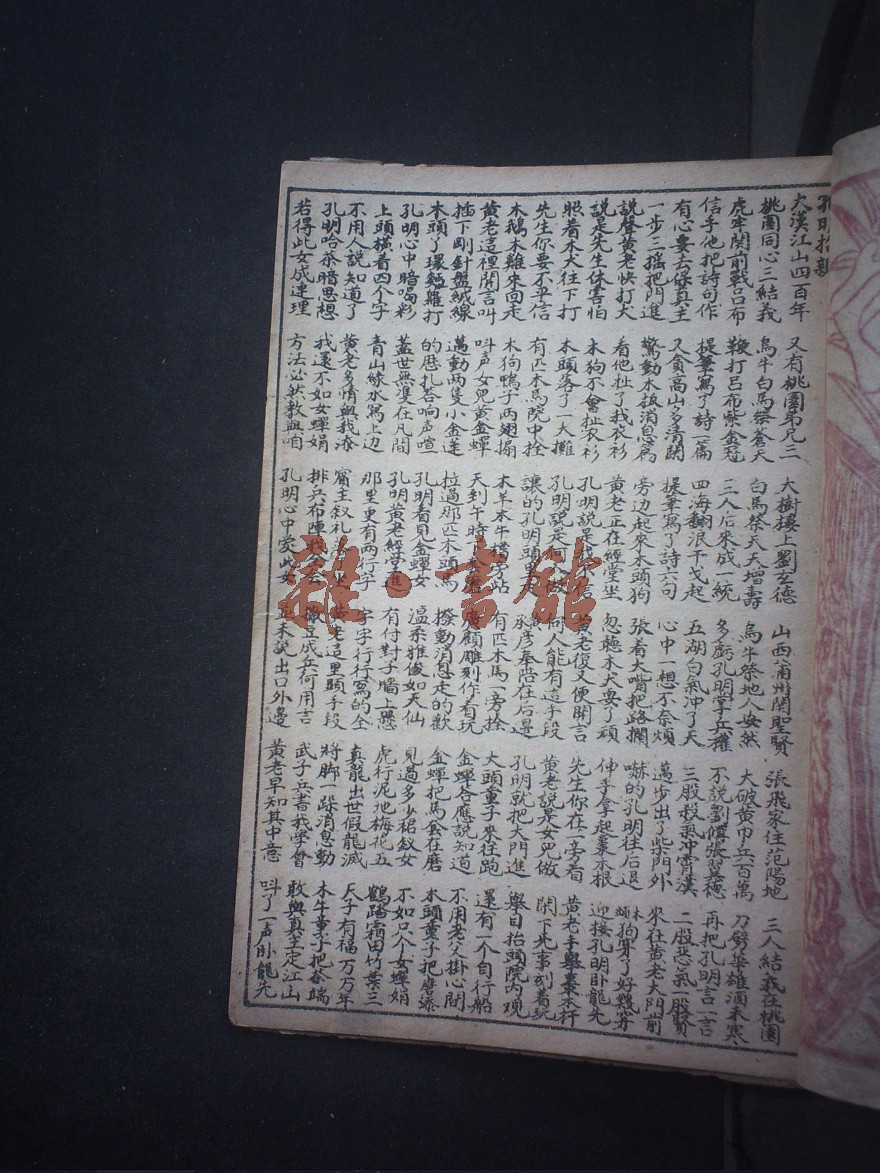 孔明招親
大漢江山四百年 又有桃園弟兄三 大樹樓上劉玄德 山西蒲州関聖賢 張飛家住范陽地 三人結義在桃園
桃園同心三結義 烏牛白馬祭蒼天 白馬祭天天增壽 烏牛祭地人安然 大破黃巾兵百萬 刀劈華雄酒未寒
虎牢関前戰呂布 鞭打呂布紫金冠 三人后來成一統 多虧孔明掌兵權 不說劉俻張翼德 再把孔明言一言
信手他把詩句作 提筆寫了詩一篇 四海翻浪干戈起 五湖白氣冲了天 三股殺氣冲霄漢 二股惡氣一股賢
有心要去保真主 又貪高山多清閑 提筆寫了詩六句 心中一想不奈煩 邁步出了柴門外 來在黃老大門前
一步三搖把門進 驚動木板消息 旁边起來木頭狗 張着大嘴把路攔 嚇的孔明往后退
說聲黃老快打犬 看他扯了我衣衫 黃老正在經堂坐 忽聽木犬要了頑 伸手拿起 木根 迎接孔明卧龍先
說是先生休害怕 木狗不會扯衣衫 孔明說是我不信 黃老復又便開言 先生你在一旁看 黃老手舉 木杆
照着木犬往下打 木頭落了一大攤 孔明說是何人做 何人能有這手段 黃老說是女兒做 閑下無事刻着玩
先生你要不平信 有匹木馬院中拴 讓的孔明頭里走 承彦奉陪在后邊 孔明就把大門進 舉目抬頭院內观
木鵝木雞來回走 木狗鴨子两翅搧 木羊木牛 站 有匹木馬一旁拴 大頭童子來往跑 還有一个自行船
黃老這裡開言叫 呌声女兒黃金蟬 天到午時 顧雕刻作着玩 金蟬答應說知道 不用老父掛心間
插下剛針盤絨線 邁動两隻小金蓮 拉過那匹木頭馬 撥動消息走的歡 金蟬把馬套在磨 木頭童子把磨添
木頭了環麵羅打 的歷扎荅响声喧 孔明看見金蟬女 温柔雅俊如天仙 見過多少裙釵女 不如只个女蟬娟
孔明心中暗喝彩 蓋世無雙在凡間 孔明黃老經堂進 有付對子牆上懸 虎行泥地梅花五 鶴踏霜田竹葉三
上頭橫着四个字 青山綠水寫上边 那里更有两行字 字字行行寫的全 真龍出世假龍滅 天子有福万万年
不用人說知道了 黃老多情與我 賓主叙礼 坐 黃老這里顕手段 將脚一跺消息動 木牛童子把茶端
孔明哈茶暗思想 我還不如女蟬娟 排兵布陣我 去 撒豆成兵何用言 武子兵書我學會 敢與真主定江山
若得此女成連理 方法必然教與咱 孔明心中愛此女 並未說出口外邊 黃老早知其中意 呌了一声卧龍先
雜·書館